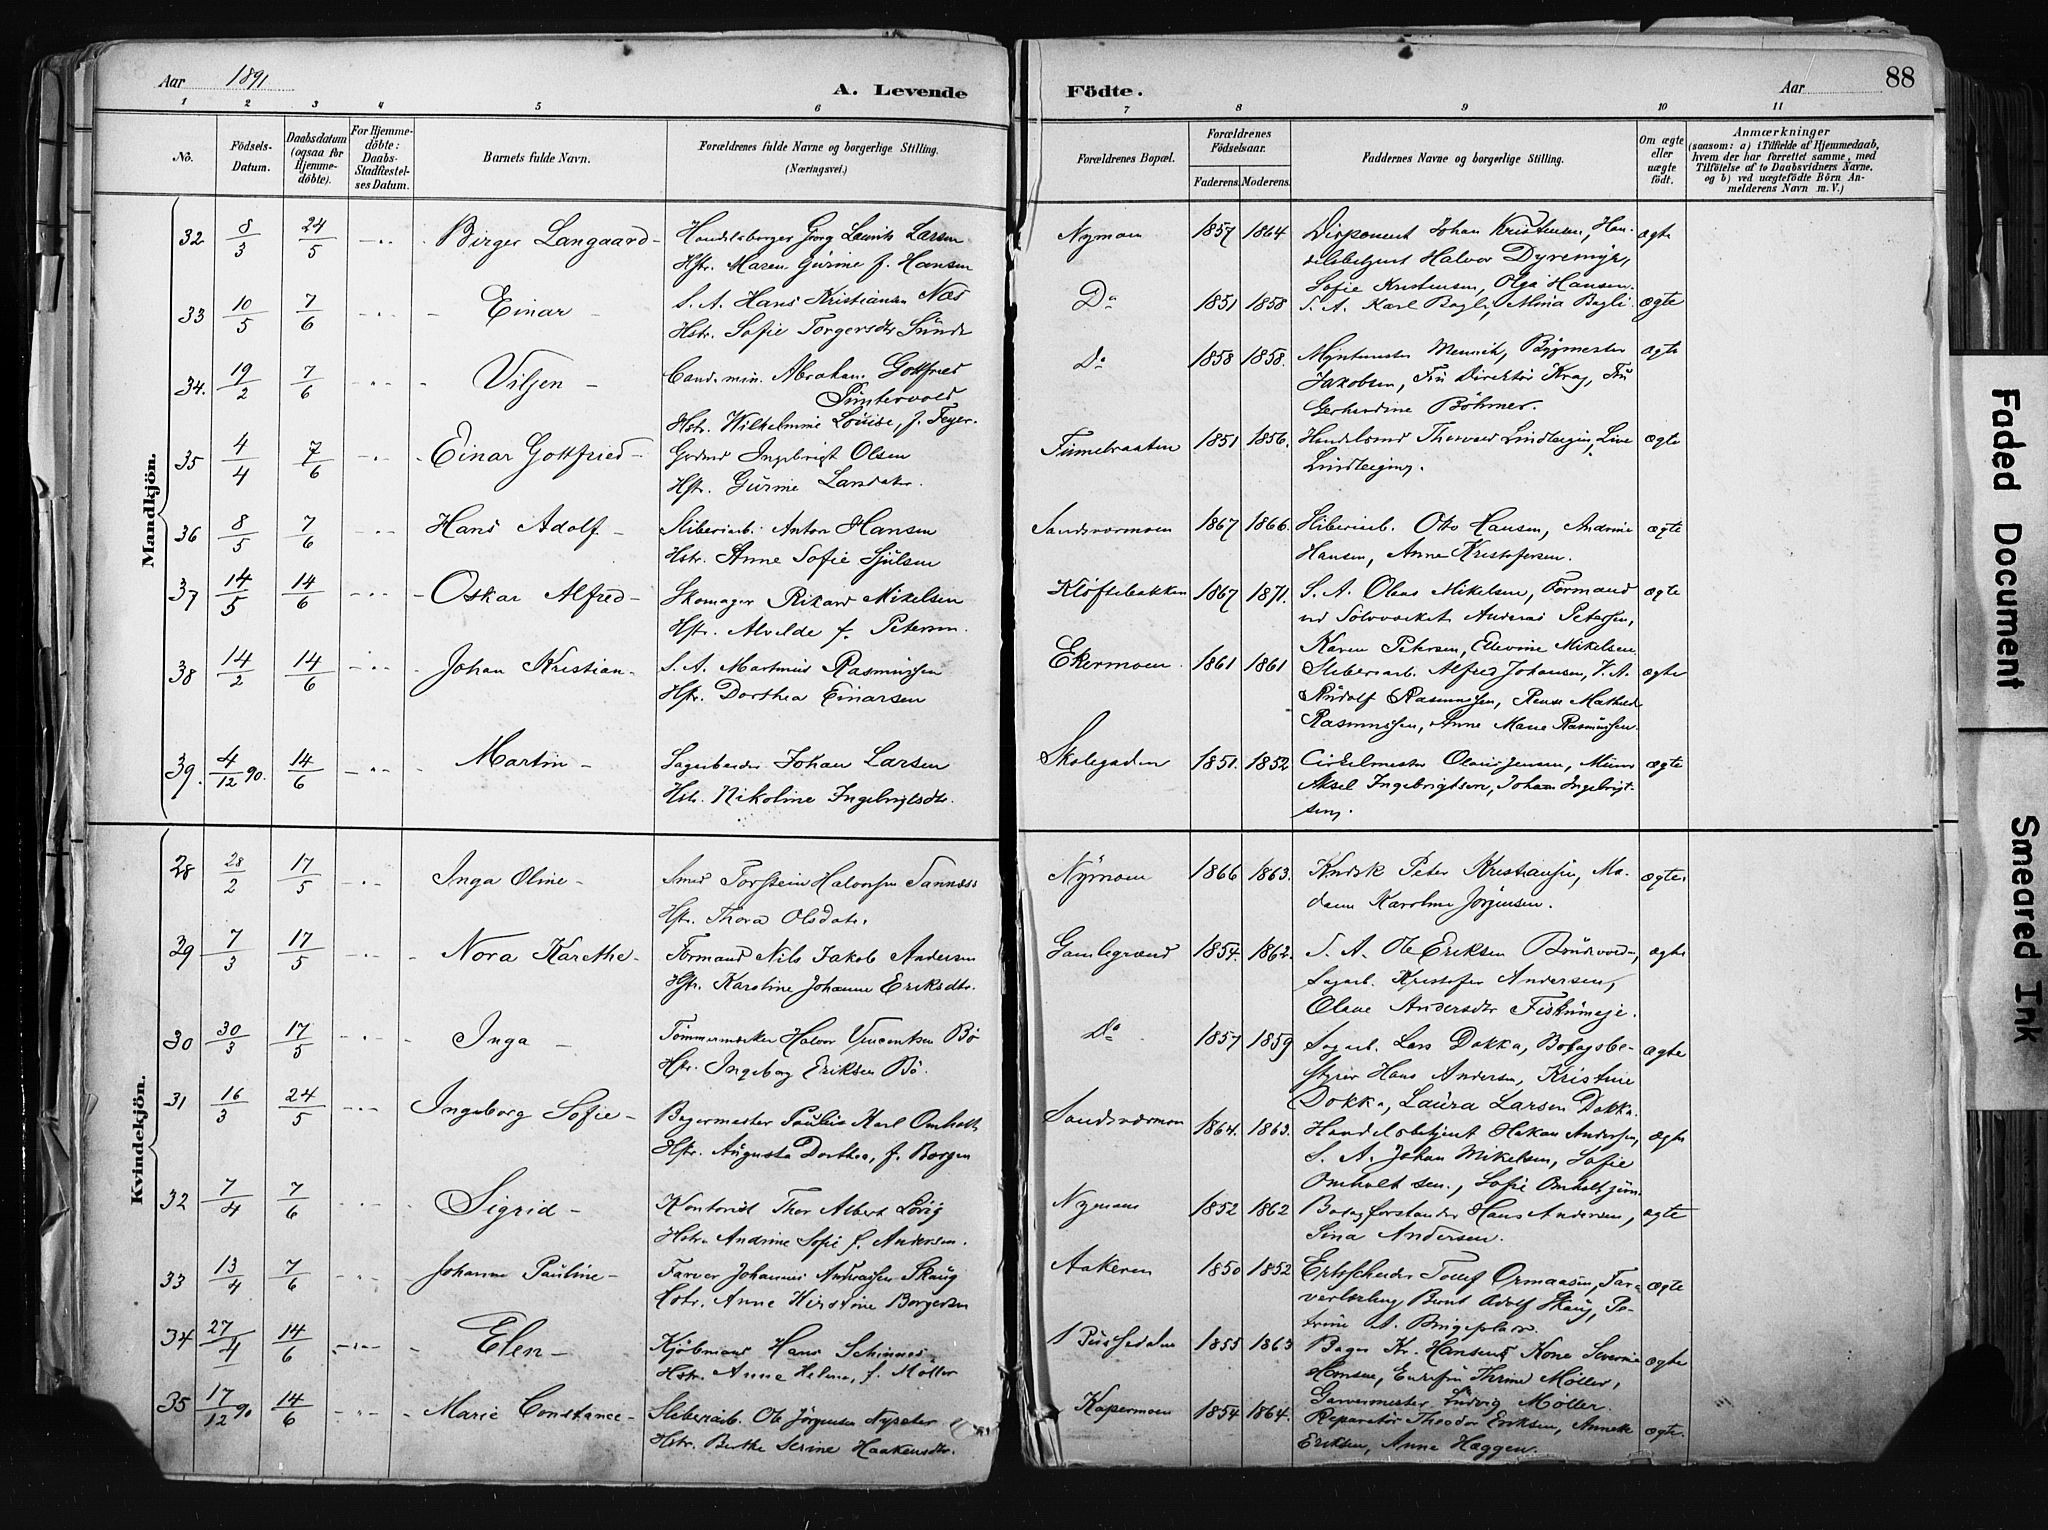 Aar 1891
A. Levende
Födte.
Aar
88
1 2 3 4 5 6 7 8 9 10 11
No.
Födsels-Datum.
Daabsdatum (ogsaa for Hjemmedöbte).
For Hjemmedöbte: Daabs-Stadfæstelses Datum.
Barnets fulde Navn.
Forældrenes fulde Navne og borgerlige Stilling. (Næringsvei.)
Forældrenes Bopæl.
Forældrenes Födselsaar.
Faderens. Moderens.
Faddernes Navne og borgerlige Stilling.
Om ægte eller uægte födt.
Anmærkninger
(saasom: a) i Tilfælde af Hjemmedaab, hvem der har forrettet samme, med Tilföielse af to Daabsvidners Navne, og b) ved uægtefödte Börn Anmelderens Navn m. V.)
Mandkjön.
32 8/3 24/5 - " - Birger Langaard - Handelsborger Georg Laurits Larsen Nymoen 1857 1864 Disponent Johan Kristensen, Han- ægte
Hstr. Maren Gurine f. Hansen delsbetjent Halvor Dyremyr,
Sofie Kristensen, Olga Hansen.
33 10/5 7/6 - " - Einar - S. A. Hans Kristiansen Næs Do 1851 1858 S. A. Karl Bagli, Mina Bagli ægte
Hstr. Sofie Torgersdtr Sunde
34. 19/2 7/6 - " - Viljen - Cand. min. Abraham Gottfried Do 1858 1858. Myntmester Henrik, Bygmester ægte
Puntervold Jakobsen, Fru Direktör Krag, Fru
Hstr. Wilhelmine Louise, f. Feyer. Gerhardine Böhmer.
35 4/4 7/6 - " - Einar Gottfried - Ingebrigt Olsen 1851 1856. Handelsmd Thorvald Live ægte
Hstr. Gurine
36 8/5 7/6 - " - Hans Adolf. - Sliberiarb. Anton Hansen Sandsværmoen 1867 1866. Sliberiarb. Otto Hansen, Andrine ægte
Hstr. Anne Sofie Sjulsen Hansen, Anne Kristofersen.
37 14/5 14/6 - " - Oskar Alfred - Skomager Rikard Mikelsen Klöftebakken 1867 1871. S. A. Olaus Mikelsen, Formand ægte
Hstr. Alvilde f. Petersen. ved Sölvværket Andreas Petersen,
Karen Petersen, Ellevine Mikelsen
38 14/2 14/6 - " - Johan Kristian - S. A. Martinus Rasmussen Ekermoen. 1861 1861 Sliberiarb. Alfred Johansen, S. A. ægte
Hstr. Dorthea Einarsen Rudolf Rasmussen, Mathilde
Rasmussen, Anne Marie Rasmussen.
39. 4/12 90. 14/6 - " - Martin - Sagarbeider Johan Larsen Skolegaden 1851. 1852 Olaus Jensen, Minør ægte
Hstr. Nikoline Ingebrigtsdtr. Aksel Ingebrigtsen, Johan Ingebrigt-
sen.
Kvindekjön.
28 28/2 17/5 - " - Inga Oline - Smed Torstein Halvorsen Tannæs Nymoen 1866 1863. Kudsk Peter Kristiansen, Ma- ægte
Hstr. Thora Olsdatr. dam Karoline Jörgensen.
29 7/3 17/5 - " - Nora Karethe - Formand Nils Jakob Andersen Gamlegrænd 1854. 1862. S. A. Ole Eriksen ægte
Hstr. Karoline Johanne Eriksdtr. Sagarb. Kristofer Andersen,
Olave Andersdtr
30 30/3 17/5 - " - Inga - Tömmermærker Halvor Vincentsen Bö Do 1857 1859 Sagarb. Lars Dokka, Bolagsbe- ægte
Hstr. Ingeborg Eriksen Bö. styrer Hans Andersen, Kristine
Dokka, Laura Larsen Dokka.
31 16/3 24/5 - " - Ingeborg Sofie - Bagermester Paulus Karl Omholt Sandsværmoen 1864. 1863. Handelsbetjent Hakon Andersen, ægte
Hstr. Augusta Dorthea, f. Borgen S. A. Johan Mikelsen, Sofie
Omholt sen., Sofie Omholt jun.
32 7/4 7/6 - " - Sigrid - Kontorist Thor Albert Lövig Nymoen 1852 1862 Bolagsforstander Hans Andersen, ægte
Hstr. Andrine Sofie f. Andersen. Sina Andersen.
33 13/4 7/6 - " - Johanne Pauline - Farver Johannes Andreassen Skaug Aakeren 1850 1852 Ertsscheider Tollef Ormaasen, Far- ægte
Hstr. Anne Kirstine Borgersen verlærling Bernt Adolf Skaug, Pe-
trine A. Bingeplads.
34 27/4 14/6 - " - Elen - Kjöbmand Hans Schinnes Pussedalen 1855 1863 Bager Kr. Hansen, Kone Severine ægte
Hstr. Anne Helene, f. Möller Hansen, Enkefru Thrine Möller,
Garvermester Ludvig Möller.
35 17/12 90 14/6 - " - Marie Constance - Sliberiarb. Ole Jörgensen Nyseter Kapermoen 1854 1864. Reparatör Theodor Eriksen, Anneke ægte.
Hstr. Berthe Serine Haakensdtr. Eriksen, Anne Hæggen.
Faded Document
Smeared Ink